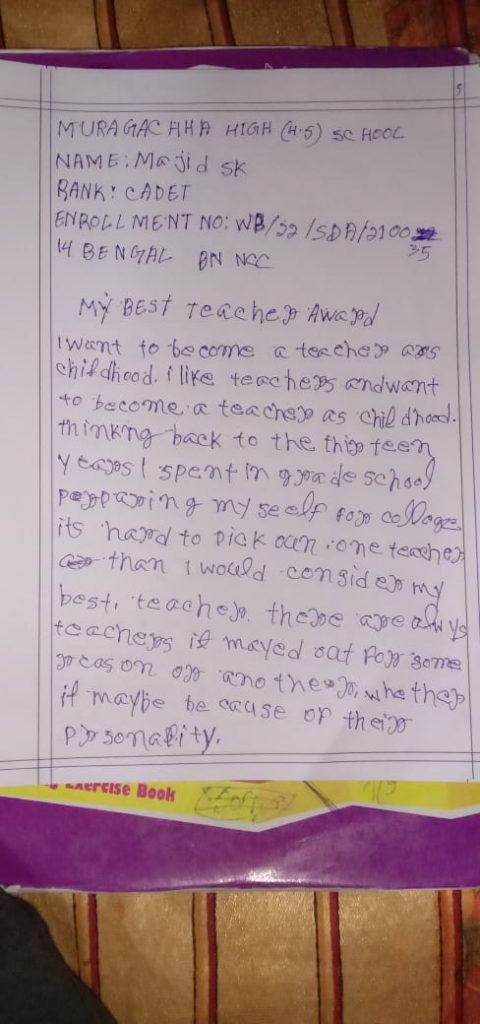 5
MURAGACHHA HIGH (H.S) SCHOOL
NAME: Majid SK
RANK: CADET
ENROLLMENT NO: WB/22/SDA/2100
35
14 BENGAL BN NCC
MY BEST Teacher Award
I want to become a teacher ars
childhood. i like teachers andwant
to become a teacher as childhood.
thinkng back to the thirteen
years I spent in grade school
perpparing my seelf for colloge.
its hard to pick oun one teacher
than I would consider my
best, teacher. there are alwys
teachers it mayed out for some
reason or another, whether
it maybe because of their
pirsonality.
Exercise Book